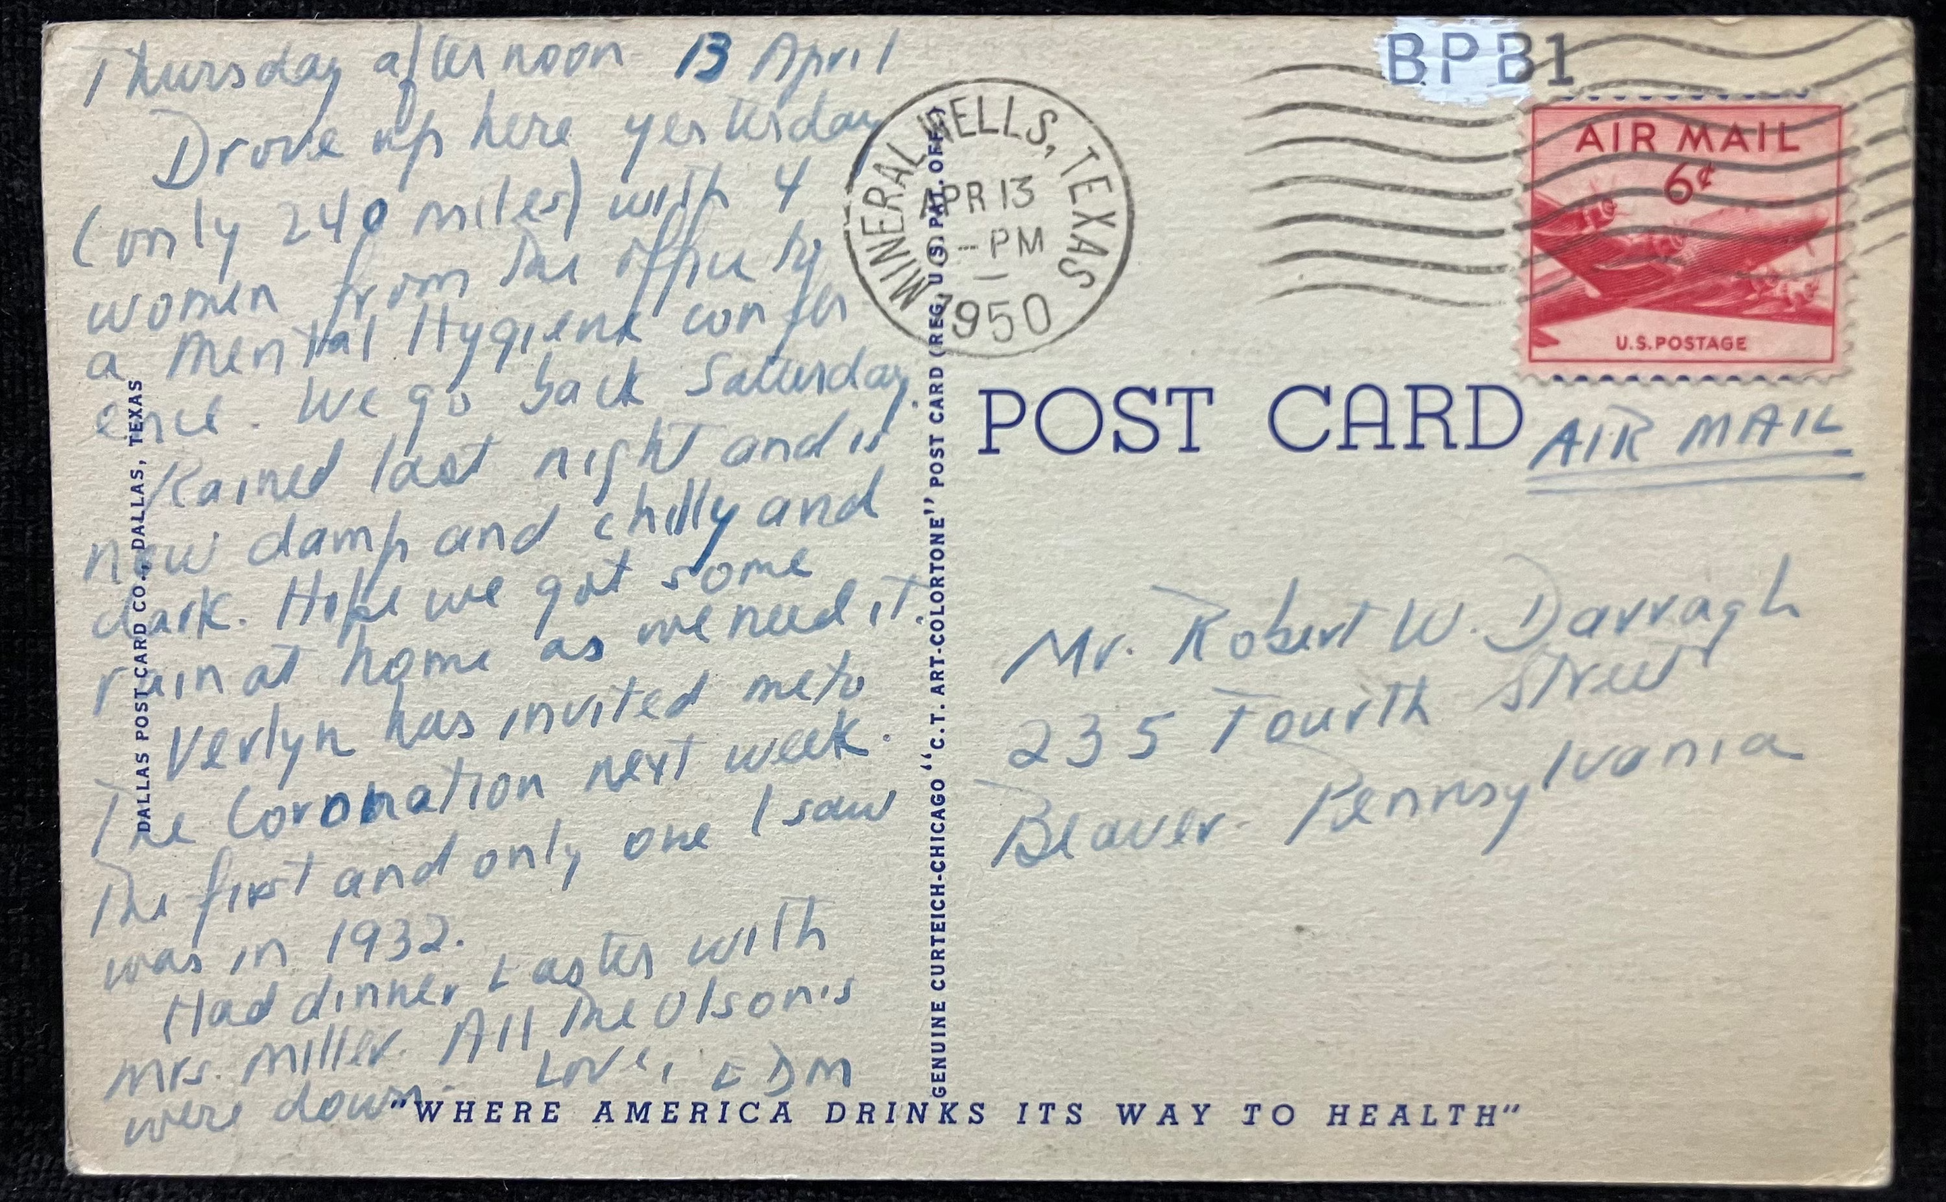 Thursday afternoon 13 April
Drove up here yesterday
(only 240 miles) with 4
women from the office to
a Mental Hygiene confer
ence. We go back Saturday.
Rained last night and is
now damp and chilly and
dark. Hope we got some
rain at home as we need it.
Verlyn has invited me to
The Coronation next week.
The first and only one I saw
was in 1932.
Had dinner Easter with
Mrs. Miller. All the Olson's
were down. Love, EDM
DALLAS POST CARD CO., DALLAS, TEXAS
GENUINE CURTEICH-CHICAGO "C.T. ART-COLORTONE" POST CARD (REG. U.S. PAT. OFF.)
MINERAL WELLS, TEXAS
APR 13
-PM
1950
BPB1
AIR MAIL
6¢
U.S. POSTAGE
POST CARD
AIR MAIL
Mr. Robert W. Darragh
235 Fourth Street
Beaver- Pennsylvania
"WHERE AMERICA DRINKS ITS WAY TO HEALTH"